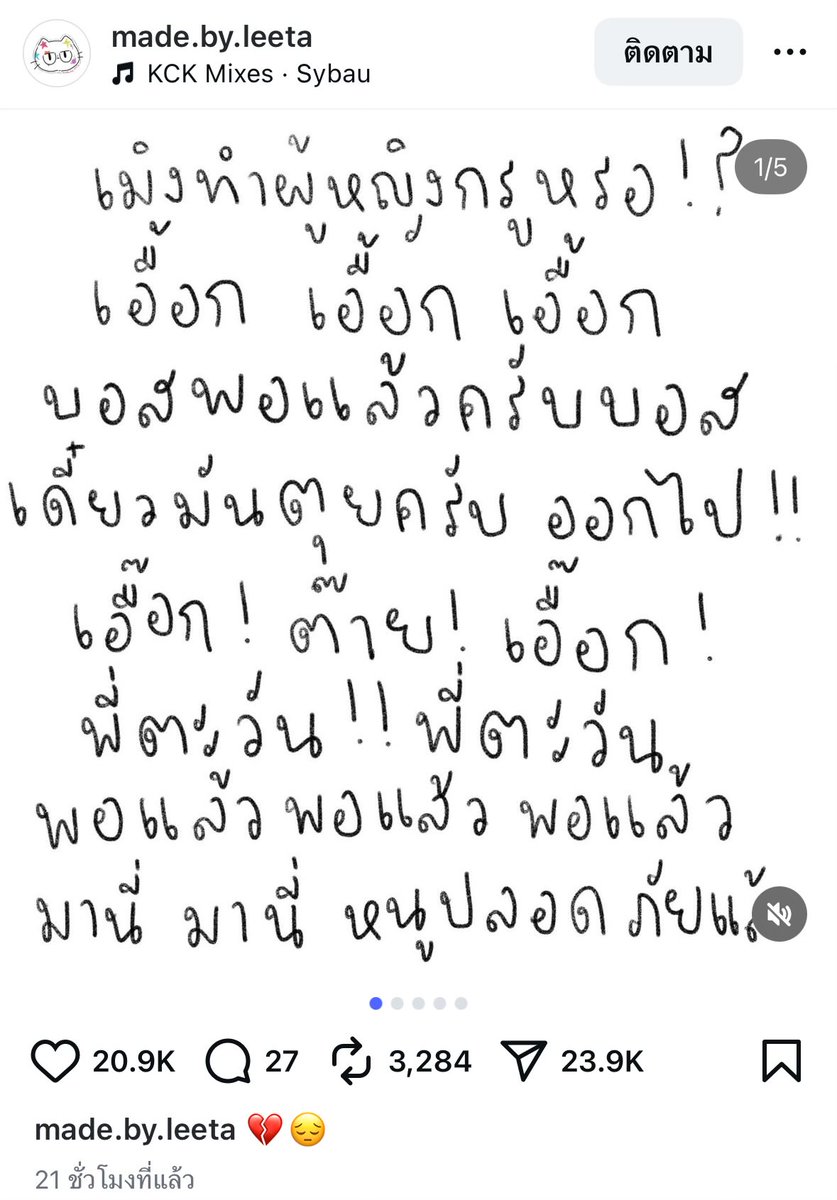 made.by.leeta
KCK Mixes · Sybau
ติดตาม
1/5
เมิงทำผู้หญิงกรูหรอ!?
เอื้อก เอื้อก เอื้อก
บอสพอแล้วครับบอส
เดี๋ยวมันตุยครับ ออกไป!!
เอื๊อก! ต๊าย! เอื๊อก!
พี่ตะวัน!! พี่ตะวัน
พอแล้ว พอแล้ว พอแล้ว
มานี่ มานี่ หนูปลอดภัยแล้
20.9K 27 3,284 23.9K
made.by.leeta 💔😔
21 ชั่วโมงที่แล้ว